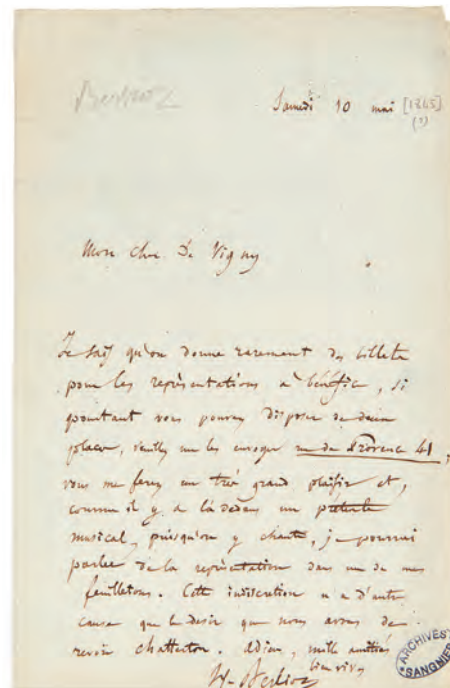 Berlioz
Samedi 10 mai [1845]
(?)
Mon cher De Vigny
Je sais qu'on donne rarement des billets
pour les représentations à bénéfice, si
pourtant vous pouvez disposer de deux
places, veuillez me les envoyer rue de Provence 41,
vous me ferez un très grand plaisir et,
comme il y a là dedans un prétexte
musical, puisqu'on y chante, je pourrai
parler de la représentation dans un de mes
feuilletons. Cette indiscrétion n'a d'autre
cause que le désir que nous avons de
revoir Chatterton. adieu, mille amitiés
bien vives
H. Berlioz
ARCHIVES
SANGNIER